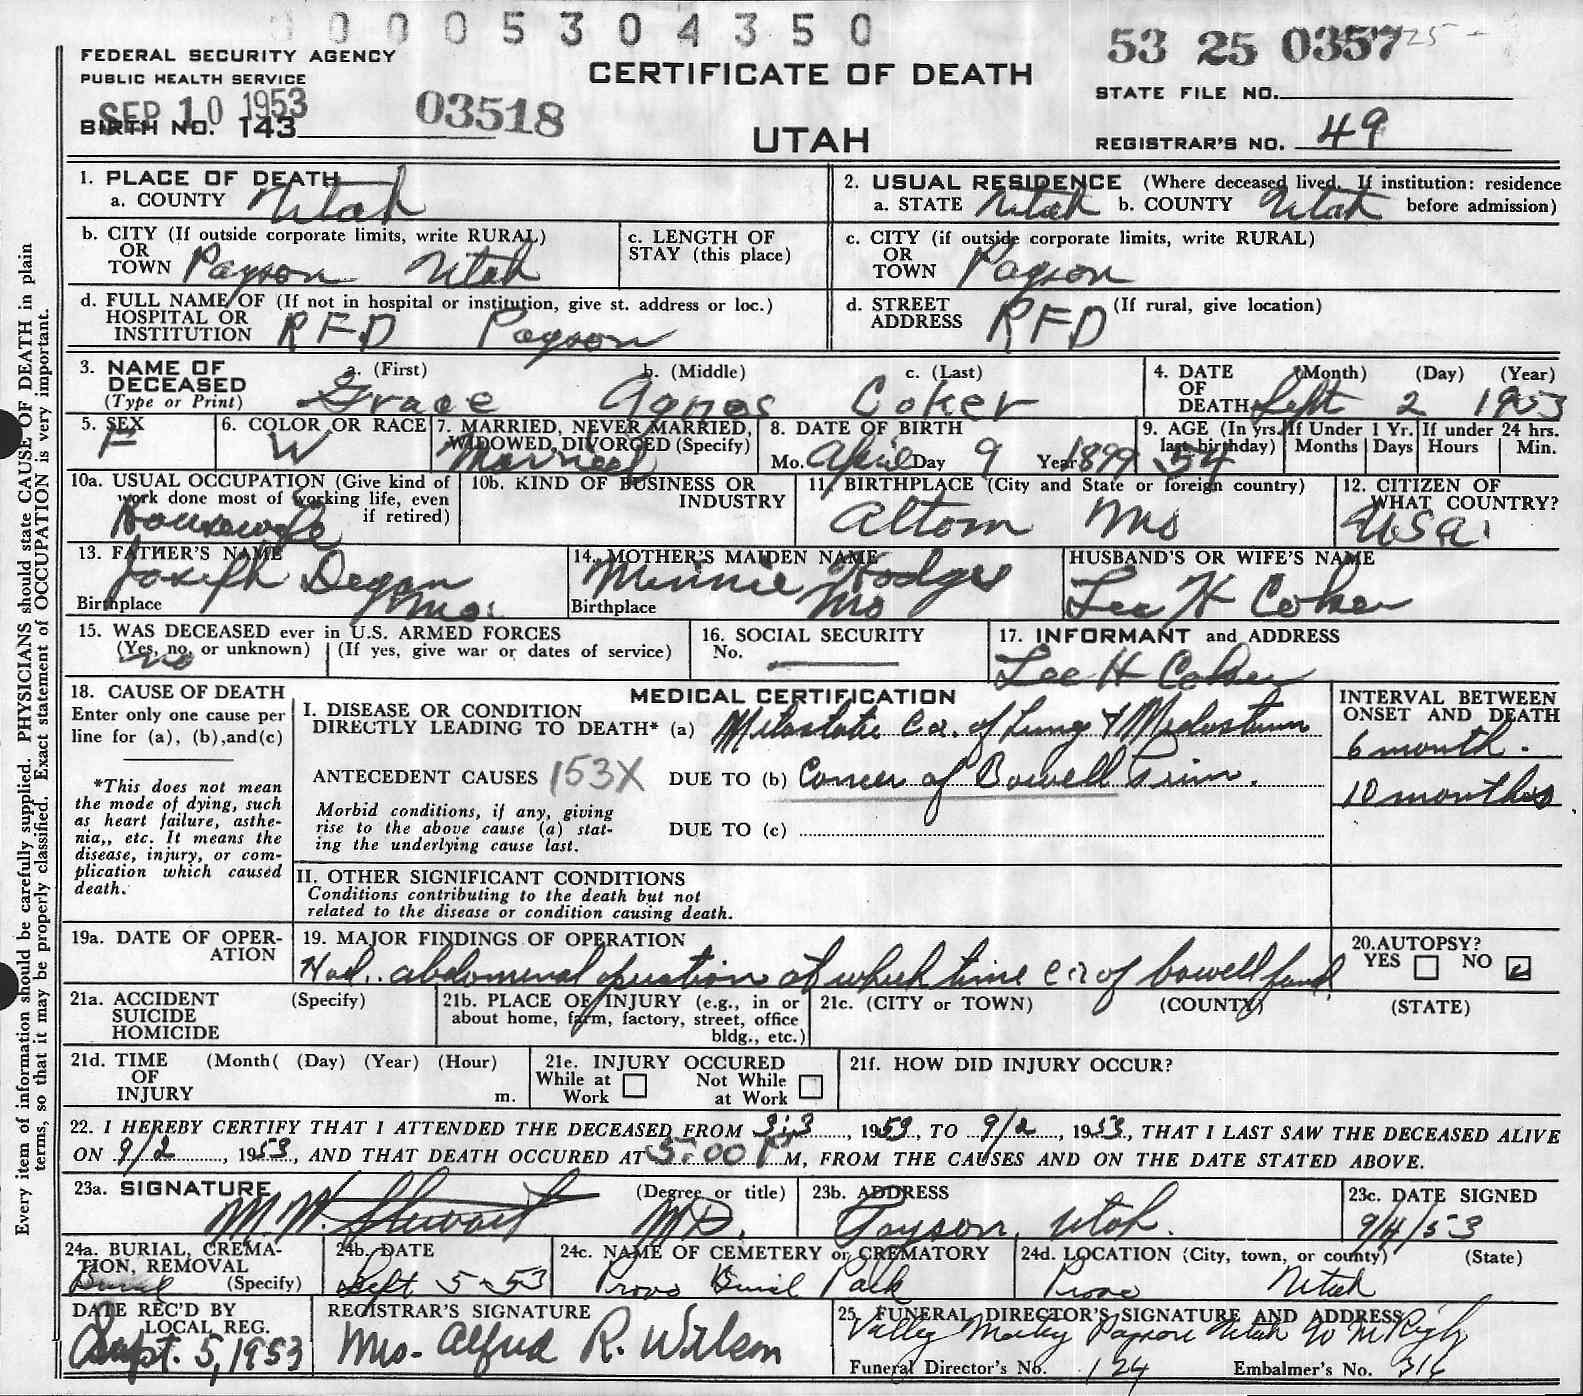 0 0 0 5 3 0 4 3 5 0
FEDERAL SECURITY AGENCY
PUBLIC HEALTH SERVICE
SEP 10 1953
BIRTH NO. 143
03518
CERTIFICATE OF DEATH
UTAH
53 25 0357 25 -
STATE FILE NO.
REGISTRAR'S NO. 49
Every item of information should be carefully supplied. PHYSICIANS should state CAUSE OF DEATH in plain
terms, so that it may be properly classified. Exact statement of OCCUPATION is very important.
1. PLACE OF DEATH
a. COUNTY Utah
2. USUAL RESIDENCE (Where deceased lived. If institution: residence
a. STATE Utah b. COUNTY Utah before admission)
b. CITY (If outside corporate limits, write RURAL)
OR
TOWN Payson Utah
c. LENGTH OF
STAY (this place)
c. CITY (if outside corporate limits, write RURAL)
OR
TOWN Payson
d. FULL NAME OF (If not in hospital or institution, give st. address or loc.)
HOSPITAL OR
INSTITUTION RFD Payson
d. STREET (If rural, give location)
ADDRESS RFD
3. NAME OF a. (First) b. (Middle) c. (Last)
DECEASED
(Type or Print) Grace Agnes Coker
4. DATE (Month) (Day) (Year)
OF
DEATH Sept 2 1953
5. SEX
F
6. COLOR OR RACE
W
7. MARRIED, NEVER MARRIED,
WIDOWED, DIVORCED (Specify)
Married
8. DATE OF BIRTH
Mo. April Day 9 Year 1899
9. AGE (In yrs. last birthday) 54
If Under 1 Yr. Months Days
If under 24 hrs. Hours Min.
10a. USUAL OCCUPATION (Give kind of
work done most of working life, even
if retired)
Housewife
10b. KIND OF BUSINESS OR
INDUSTRY
11. BIRTHPLACE (City and State or foreign country)
Altom Mo
12. CITIZEN OF
WHAT COUNTRY?
USA.
13. FATHER'S NAME
Joseph Degan
Birthplace Mo.
14. MOTHER'S MAIDEN NAME
Minnie Hodges
Birthplace Mo
HUSBAND'S OR WIFE'S NAME
Lee H Coker
15. WAS DECEASED ever in U.S. ARMED FORCES
(Yes, no, or unknown) (If yes, give war or dates of service)
no
16. SOCIAL SECURITY
No.
17. INFORMANT and ADDRESS
Lee H Coker
18. CAUSE OF DEATH
Enter only one cause per
line for (a), (b),and(c)
*This does not mean
the mode of dying, such
as heart failure, asthe-
nia,, etc. It means the
disease, injury, or com-
plication which caused
death.
MEDICAL CERTIFICATION
I. DISEASE OR CONDITION
DIRECTLY LEADING TO DEATH* (a) Ca. of Lung &
ANTECEDENT CAUSES 153X DUE TO (b) Concer of Bowell Prim.
Morbid conditions, if any, giving
rise to the above cause (a) stat-
ing the underlying cause last.
DUE TO (c)
INTERVAL BETWEEN
ONSET AND DEATH
6 month.
10 months
II. OTHER SIGNIFICANT CONDITIONS
Conditions contributing to the death but not
related to the disease or condition causing death.
19a. DATE OF OPER-
ATION
19. MAJOR FINDINGS OF OPERATION
Had. abdomenal opuation at which time ca of bowell fund
20.AUTOPSY?
YES NO
21a. ACCIDENT (Specify)
SUICIDE
HOMICIDE
21b. PLACE OF INJURY (e.g., in or
about home, farm, factory, street, office
bldg., etc.)
21c. (CITY or TOWN) (COUNTY) (STATE)
21d. TIME (Month( (Day) (Year) (Hour)
OF
INJURY m.
21e. INJURY OCCURED
While at Work Not While at Work
21f. HOW DID INJURY OCCUR?
22. I HEREBY CERTIFY THAT I ATTENDED THE DECEASED FROM 3-3, 1953, TO 9/2, 1953, THAT I LAST SAW THE DECEASED ALIVE
ON 9/2, 1953, AND THAT DEATH OCCURED AT 5:00 P M, FROM THE CAUSES AND ON THE DATE STATED ABOVE.
23a. SIGNATURE (Degree or title)
M. W. Stewart MD.
23b. ADDRESS
Payson, Utah.
23c. DATE SIGNED
9/4/53
24a. BURIAL, CREMA-
TION, REMOVAL
(Specify)
Burial
24b. DATE
Sept 5-53
24c. NAME OF CEMETERY or CREMATORY
Provo Burial Park
24d. LOCATION (City, town, or county) (State)
Provo Utah
DATE REC'D BY
LOCAL REG.
Sept. 5, 1953
REGISTRAR'S SIGNATURE
Mrs. Alfred R. Wilson
25. FUNERAL DIRECTOR'S SIGNATURE AND ADDRESS
Valley Payson Utah
Funeral Director's No. 124 Embalmer's No. 316